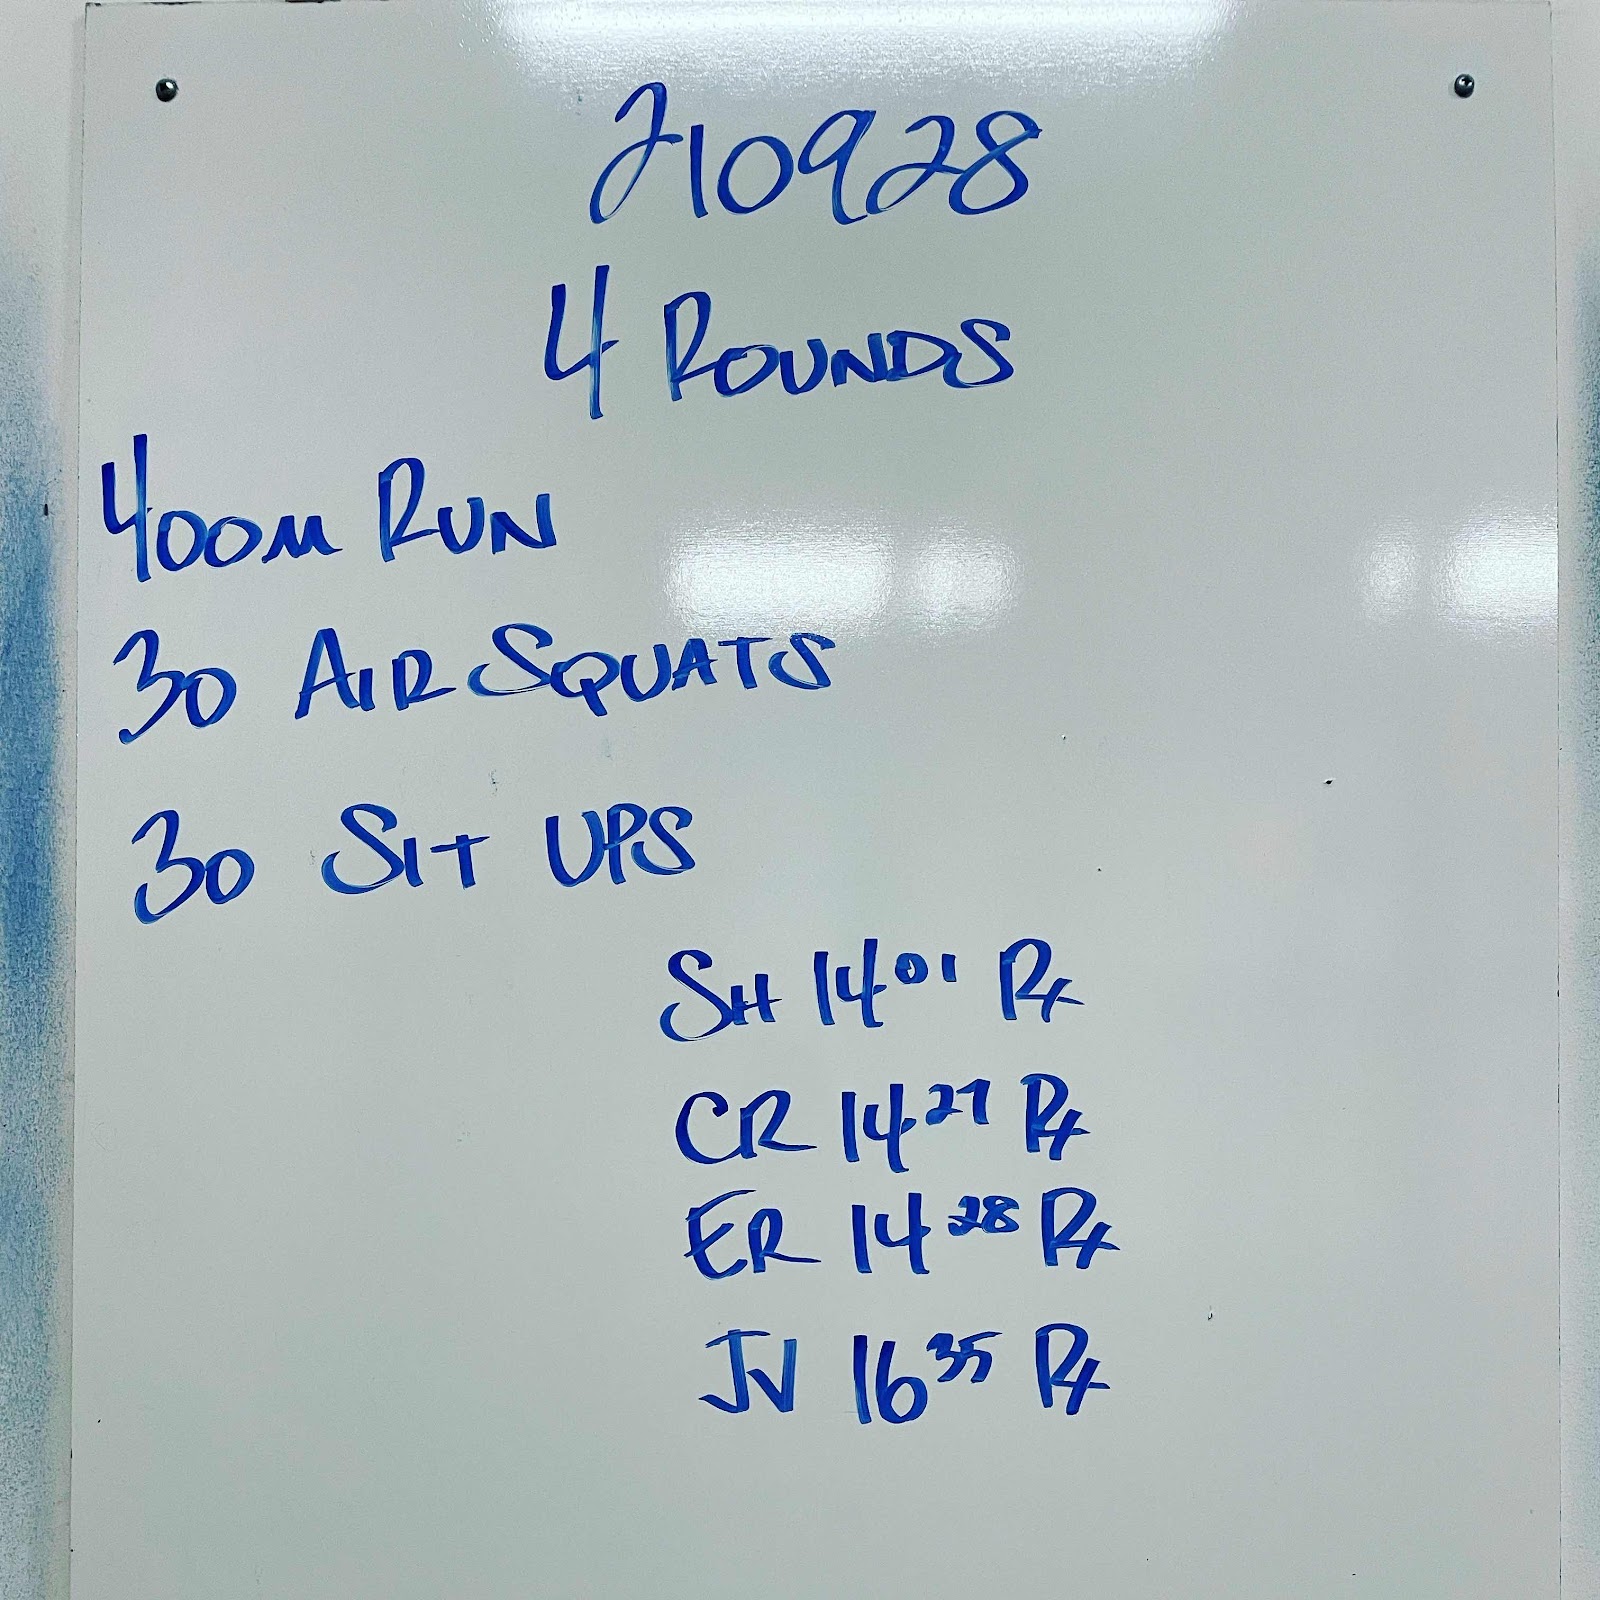 210928
4 ROUNDS
400M RUN
30 AIR SQUATS
30 SIT UPS
SH 14 01 Rx
CR 14 27 Rx
ER 14 28 Rx
JV 16 35 Rx